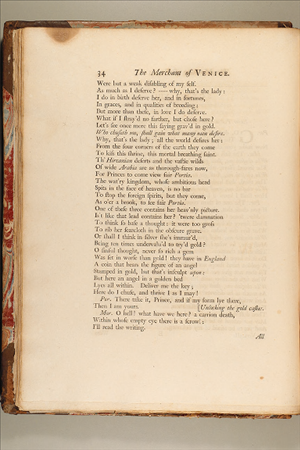 34 The Merchant of VENICE.
Were but a weak disabling of my self.
As much as I deserve? — why, that's the lady:
I do in birth deserve her, and in fortunes,
In graces, and in qualities of breeding;
But more than these, in love I do deserve.
What if I stray'd no farther, but chose here?
Let's see once more this saying grav'd in gold.
Who chuseth me, shall gain what many men desire.
Why, that's the lady; all the world desires her:
From the four corners of the earth they come
To kiss this shrine, this mortal breathing saint.
Th' Hircanian deserts and the vastie wilds
Of wide Arabia are as thorough-fares now,
For Princes to come view fair Portia.
The wat'ry kingdom, whose ambitious head
Spits in the face of heaven, is no bar
To stop the foreign spirits, but they come,
As o'er a brook, to see fair Portia.
One of these three contains her heav'nly picture.
Is't like that lead contains her? 'twere damnation
To think so base a thought: it were too gross
To rib her searcloth in the obscure grave.
Or shall I think in silver she's immur'd,
Being ten times undervalu'd to try'd gold?
O sinful thought, never so rich a gem
Was set in worse than gold! they have in England
A coin that bears the figure of an angel
Stamped in gold, but that's insculpt upon:
But here an angel in a golden bed
Lyes all within. Deliver me the key;
Here do I chuse, and thrive I as I may!
Por. There take it, Prince, and if my form lye there,
Then I am yours. [Unlocking the gold casket.
Mor. O hell! what have we here? a carrion death,
Within whose empty eye there is a scrowl:
I'll read the writing.
All